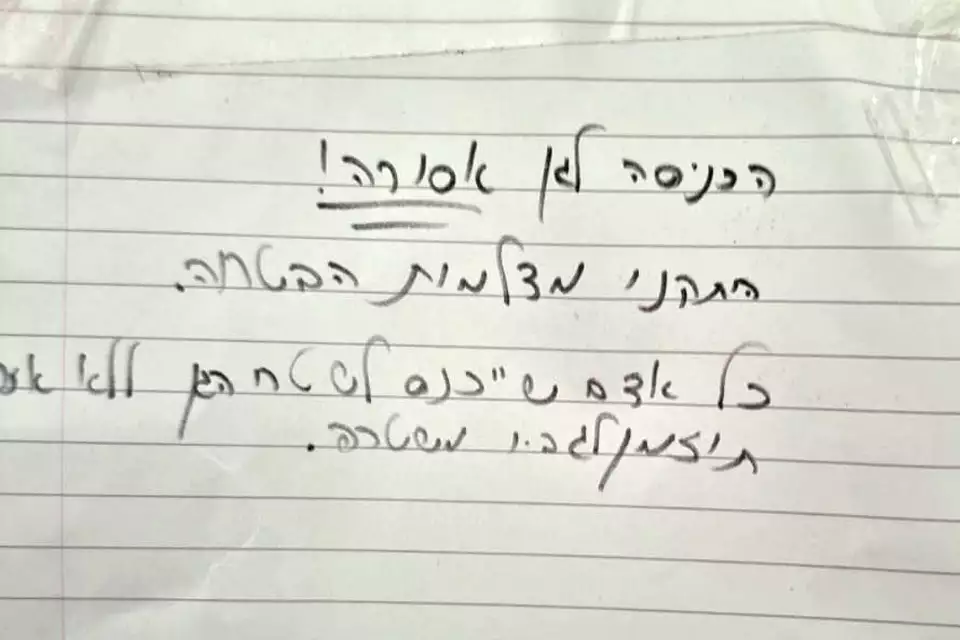 הכניסה לגן אסורה!
התקני מצלמות הבטחה.
כל אדם שיכנס לשטח הגן ללא
תיזמן לגביו משטרה.